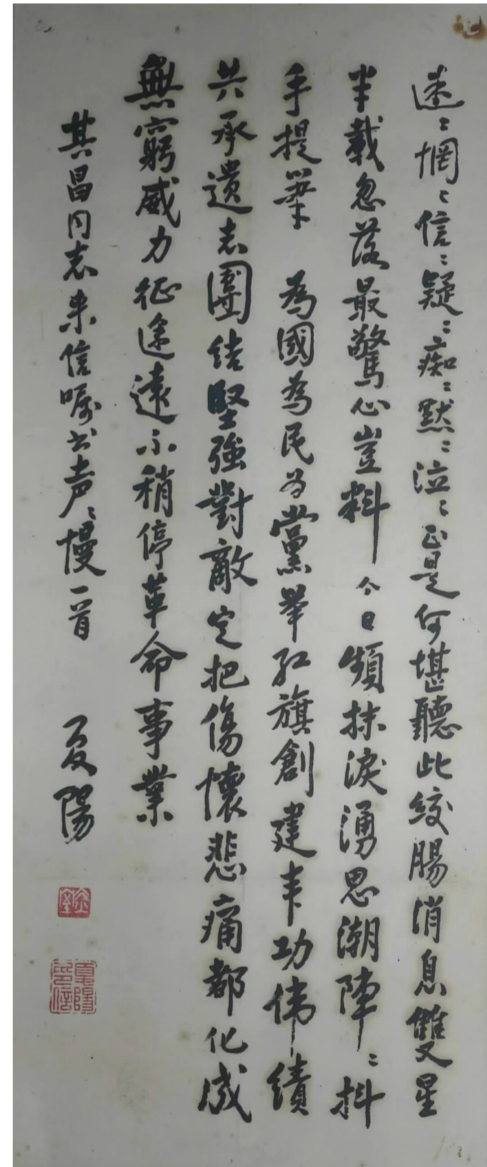 迷ミ惘ミ信ミ疑ミ痴ミ默ミ泣ミ正是何堪聽此絞腸消息雙星
半載忽落最驚心豈料今日頻抹淚湧思潮陣ミ抖
手提筆 為國為民為黨舉紅旗創建丰功偉績
共承遺志團结堅強對敵定把傷懷悲痛都化成
無窮威力征途遠不稍停革命事業
其昌同志来信嘱书声ミ慢一首
夏陽
夏陽
印信